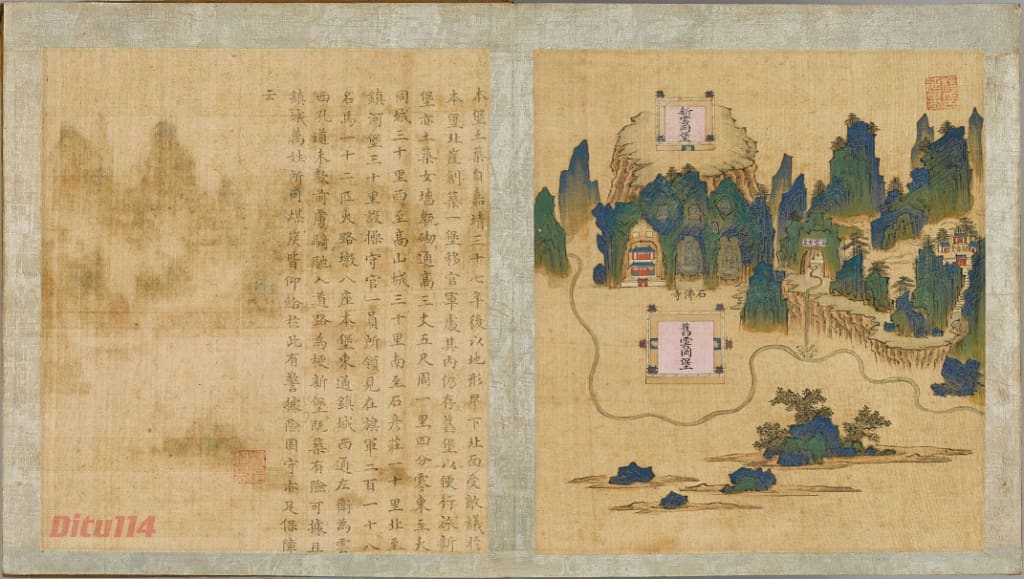 新雲岡堡
石佛寺
舊雲岡堡
本堡土築自嘉靖三十七年後以地形卑下北面受敵議於
本堡北崖創築一堡移官軍處其內仍存舊堡以便行旅新
堡亦土築女墻甎砌通高三丈五尺周一里四分零東至大
同城三十里西至高山城三十里南至石彥莊二十里北至
鎮河堡三十里設操守官一員所領見在旗軍二百一十八
名馬一十二匹火路墩八座本堡東通鎮城西通左衛為雲
西孔道未欵前虜騎馳入道路為梗新堡既築有險可據且
鎮城萬姓所用煤炭皆仰給於此有警據險固守亦足保障
云
Ditu114